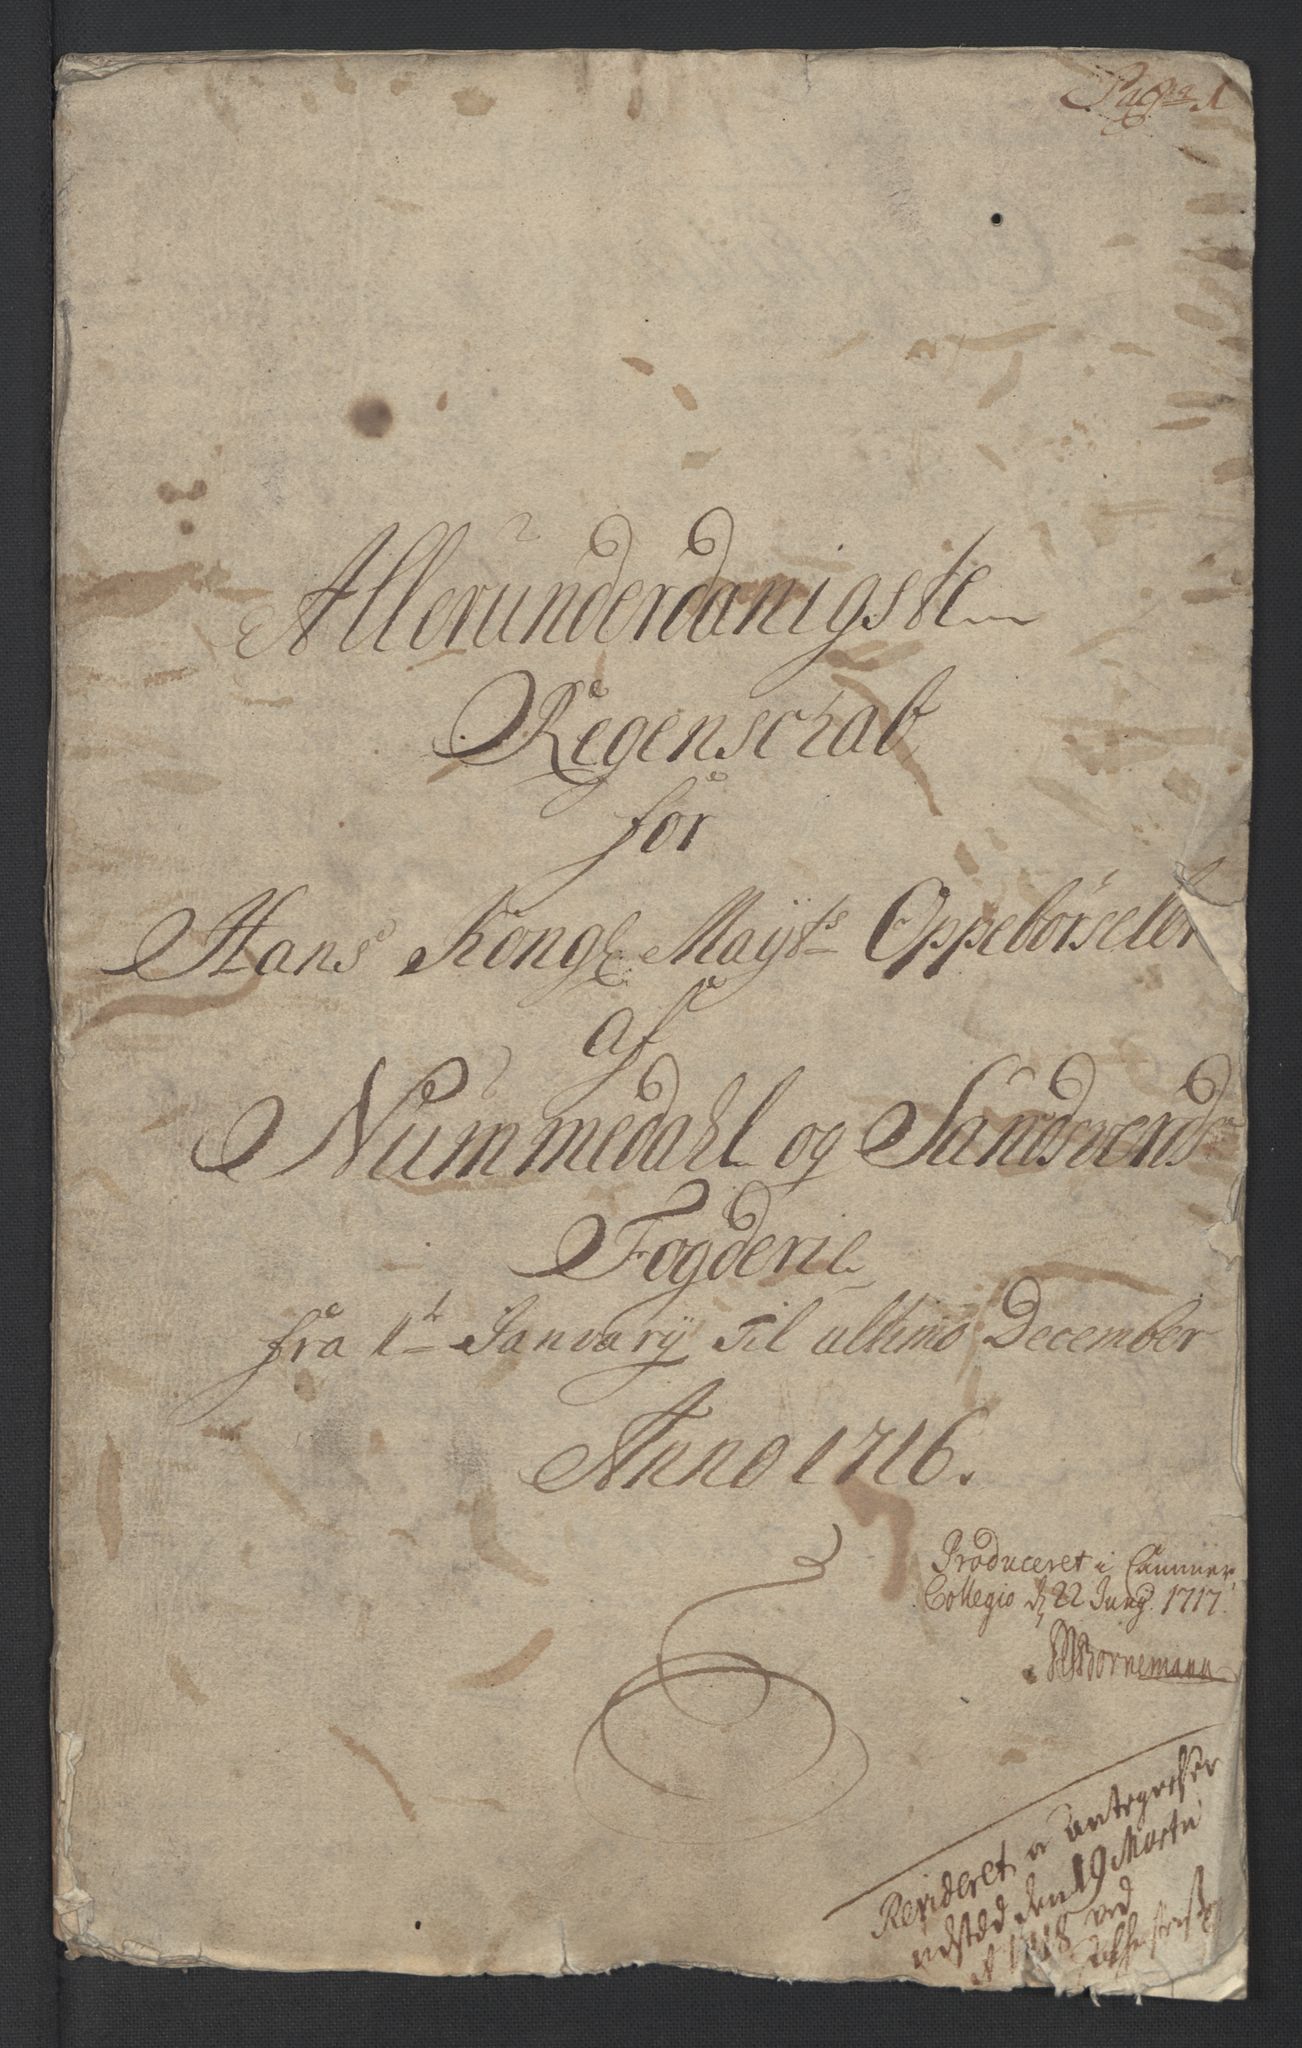 Pagina 1
Allerunderdanigste
Regenschab
for
Hans Kongl Mayts Oppebørseller
af
Nummedahl og Sandsverds
Fogderie
fra 1t January til ultimo December
Anno 1716.
Produceret i Cammer
Collegio d 22 Juny 1717.
Bornemann
Revideret og Antegnelser
udstæd den 19 Marty
Ao 1718 ved